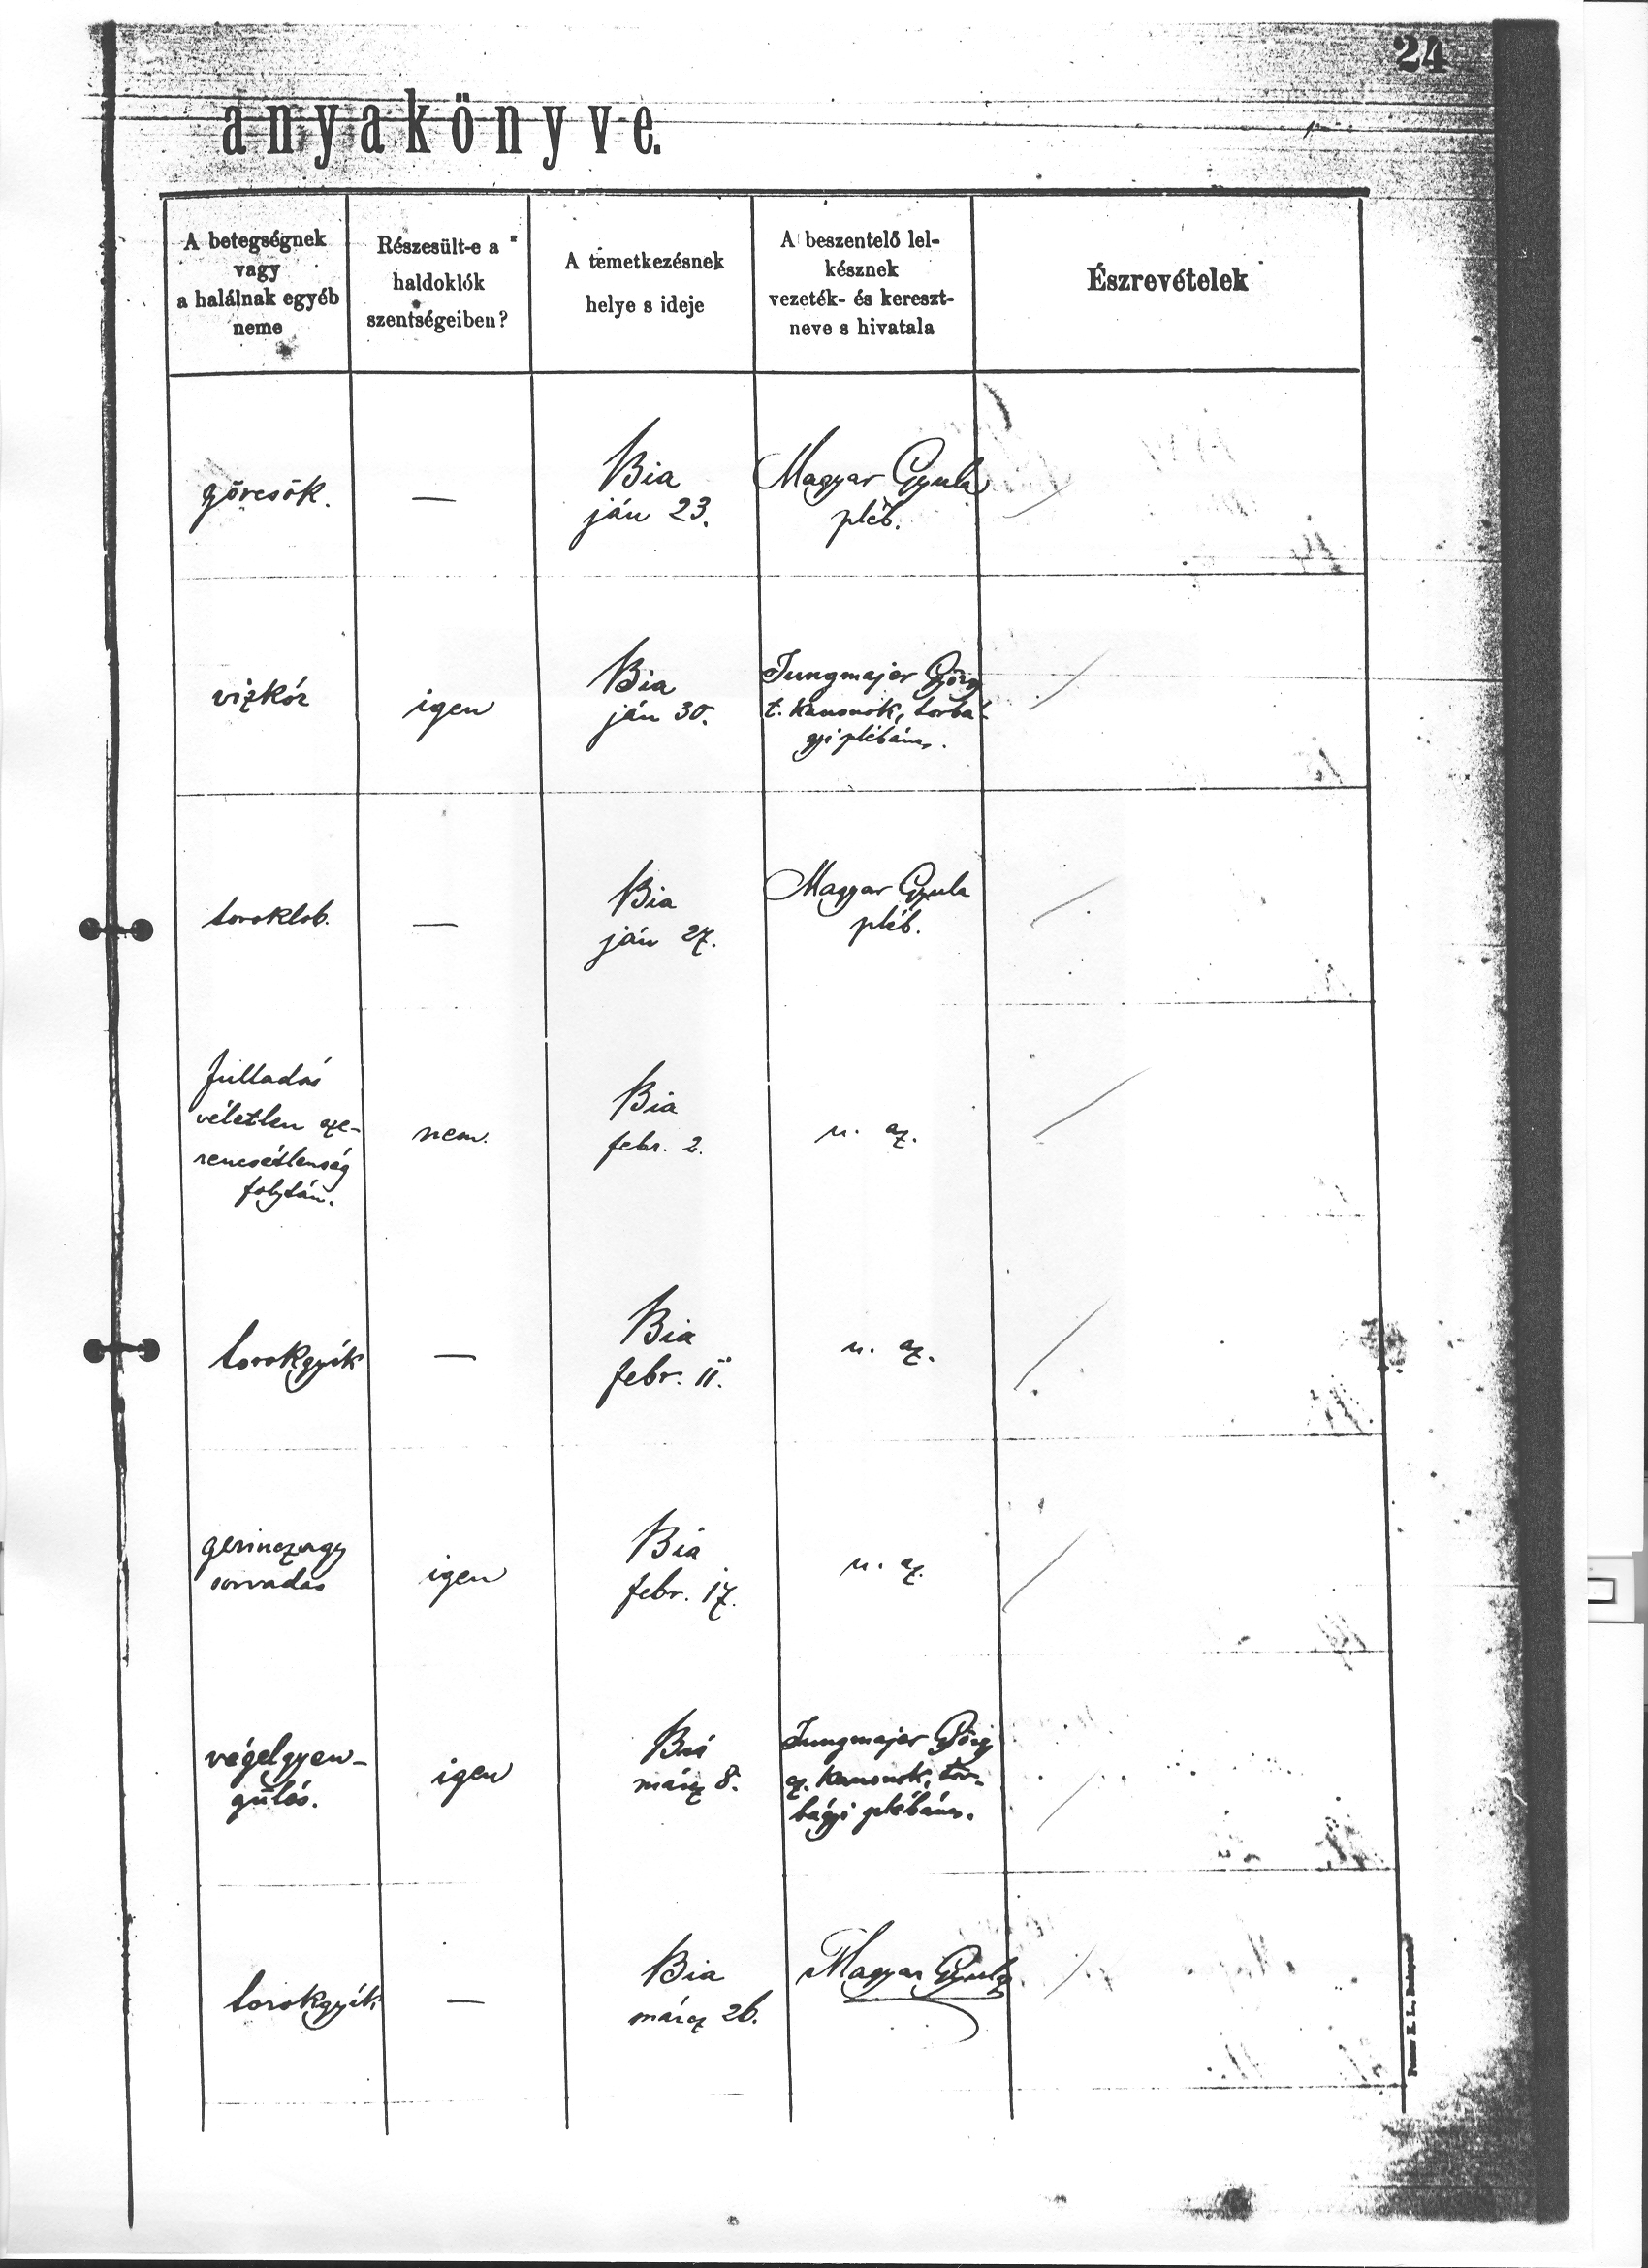 24
anyakönyve.
A betegségnek
vagy
a halálnak egyéb
neme
Részesült-e a
haldoklók
szentségeiben?
A temetkezésnek
helye s ideje
A beszentelő lel-
késznek
vezeték- és kereszt-
neve s hivatala
Észrevételek
görcsök.
—
Bia
ján 23.
Magyar Gyula
pléb.
vizkór
igen
Bia
ján 30.
Jungmajer Györg
t. kanonok, torbá-
gyi plébános.
toroklob.
—
Bia
ján 27.
Magyar Gyula
pléb.
fulladás
véletlen sze-
rencsétlenség
folytán.
nem.
Bia
febr. 2.
u. az.
torokgyík
—
Bia
febr. 11.
u. az.
gerinczagy
sorvadás
igen
Bia
febr. 17.
u. az.
végelgyen-
gülés.
igen
Bia
márcz 8.
Jungmajer Györg
cz. kanonok, tor-
bágyi plébános.
torokgyík
—
Bia
márcz 26.
Magyar Gyula